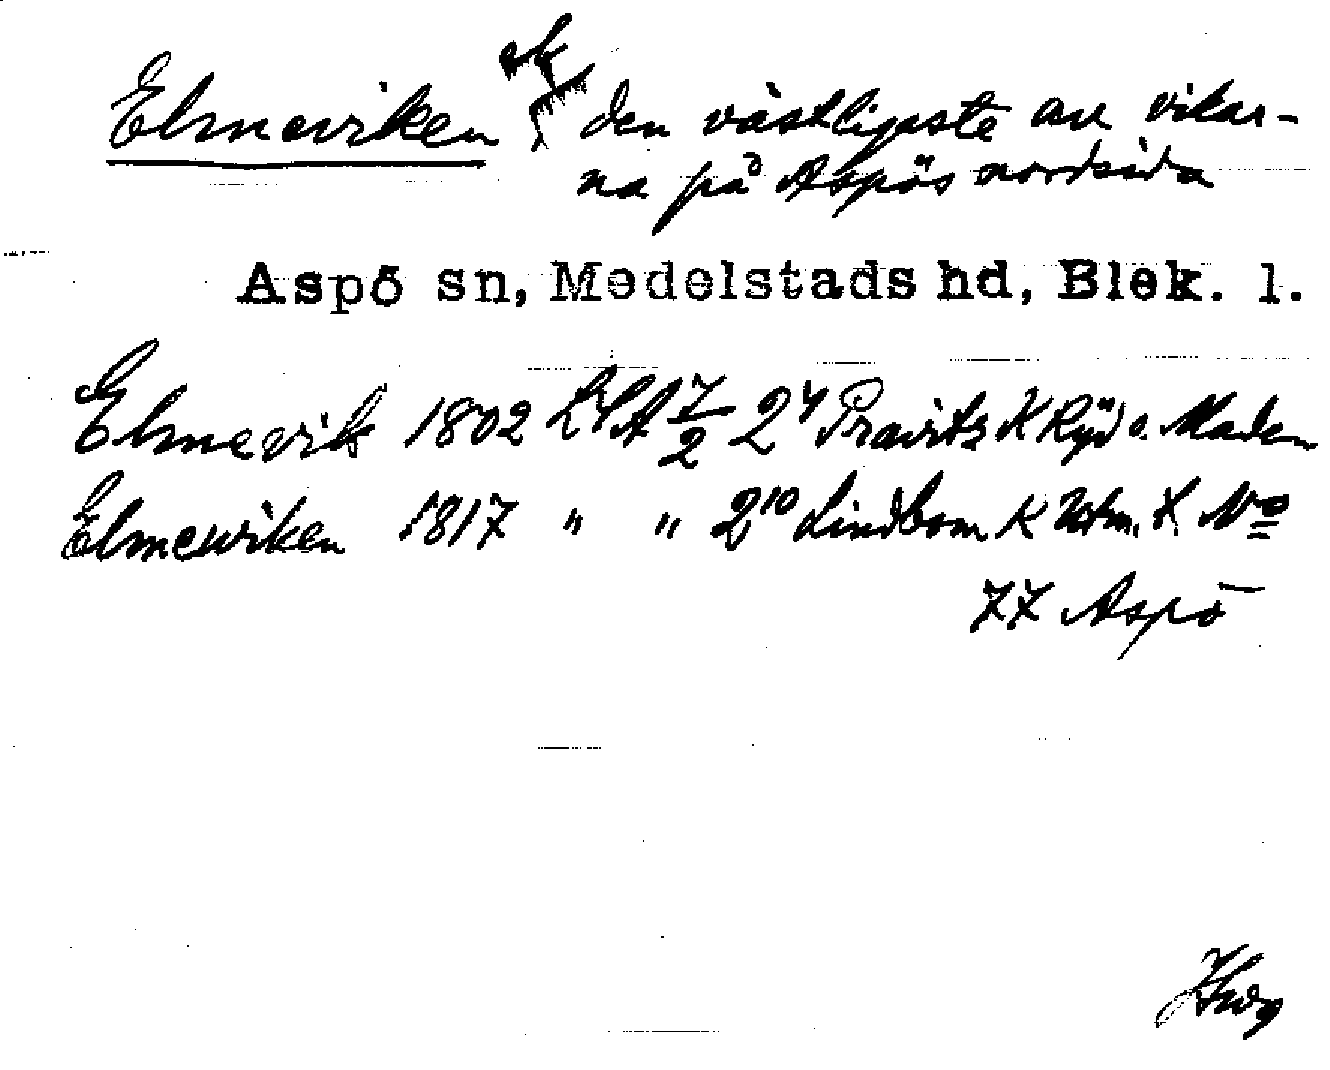 Elmeviken ek den västligaste av vikar-
na på Aspös nordsida
Aspö sn, Medelstads hd, Blek. l.
Elmevik 1802 LSA 7/2 2⁴ Pravits K Ryd o. Maden
Elmewiken 1817 " " 2¹⁰ Lindbom K Utm. t. No
77 Aspö